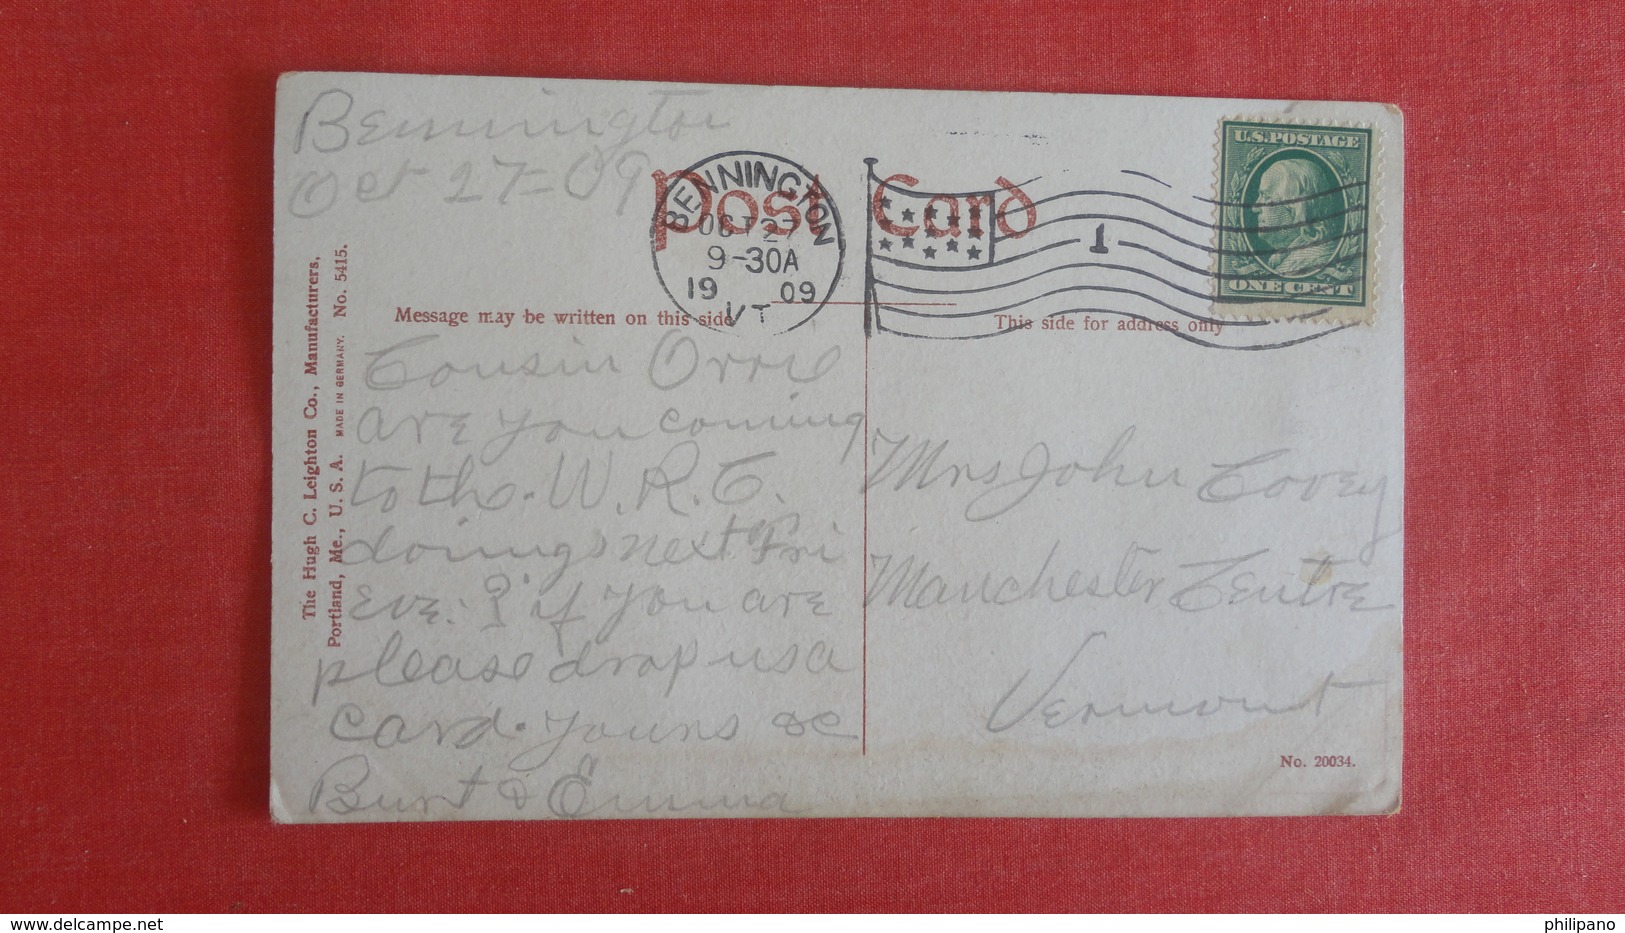 Bennington
Oct 27=09
Post Card
BENNINGTON
OCT 27
9-30A
1909
VT
1
U.S. POSTAGE
ONE CENT
Message may be written on this side
This side for address only
The Hugh C. Leighton Co., Manufacturers,
Portland, Me., U. S. A. MADE IN GERMANY. No. 5415.
Cousin Orrie
are you coming
to the. W. R. C.
doings next Fri
eve. ? if you are
please drop us a
card. Yours &c
Burt & Emma
Mrs John Covey
Manchester Centre
Vermont
No. 20034.
www.delcampe.net
philipano